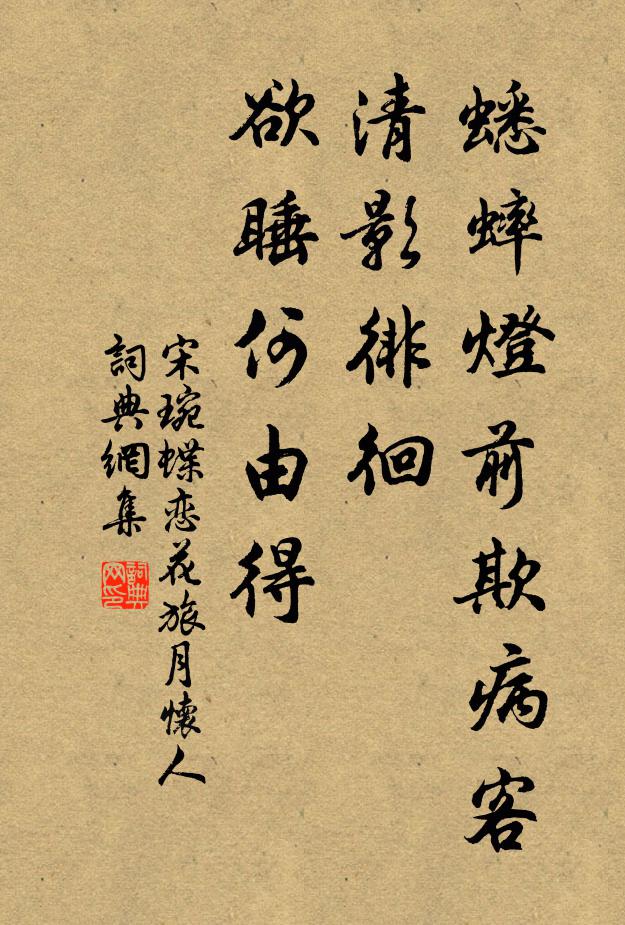 蟋蟀燈前欺病客
清影徘徊
欲睡何由得
宋琬蝶恋花旅月懷人
詞典網集
詞典网印